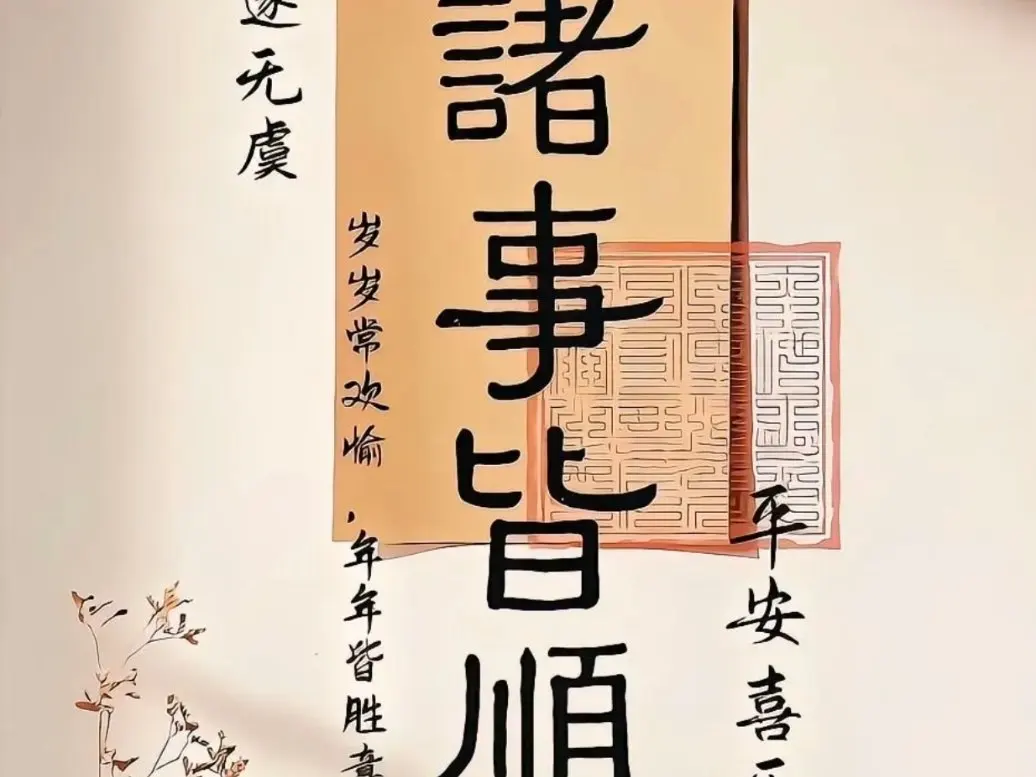 諸事皆順
平安喜
岁岁常欢愉，年年皆胜意
遂无虞